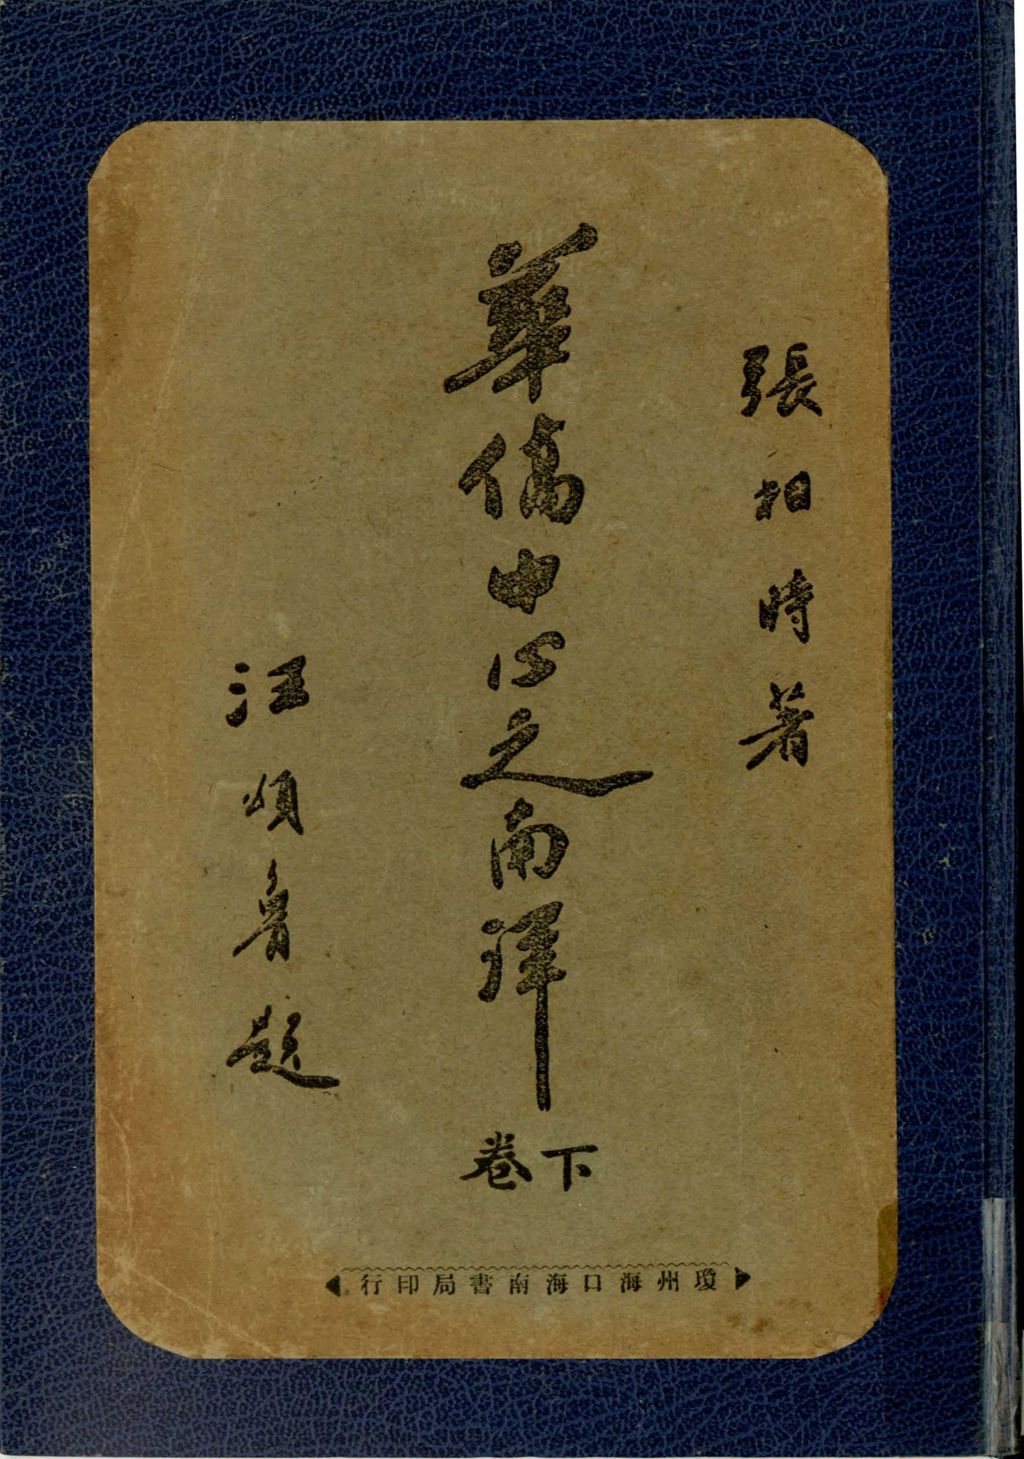 張相時著
華僑中心之南洋
下卷
汪頌魯題
瓊州海口海南書局印行